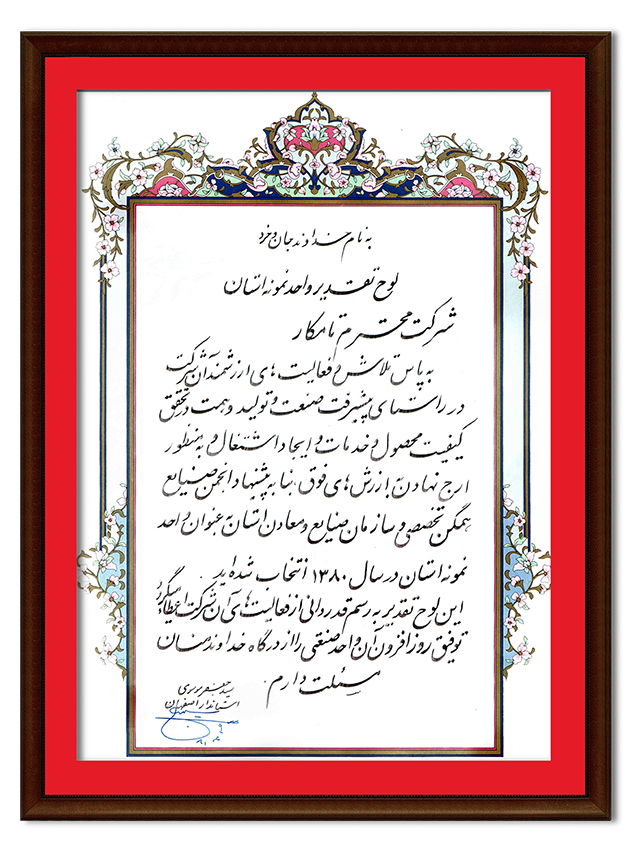 به نام خداوند جان و خرد
لوح تقدیر واحد نمونه استان
شرکت محترم تامکار
به پاس تلاش و فعالیت های ارزشمند آن شرکت
در راستای پیشرفت صنعت و تولید و همت در تحقق
کیفیت محصول و خدمات و ایجاد اشتغال و به منظور
ارج نهادن به ارزش های فوق، بنا به پیشنهاد انجمن صنایع
همگن تخصصی و سازمان صنایع و معادن استان به عنوان واحد
نمونه استان در سال ۱۳۸۰ انتخاب شده اید.
این لوح تقدیر به رسم قدردانی از فعالیت های آن شرکت اعطا میگردد
توفیق روز افزون آن واحد صنعتی را از درگاه خداوند منان
مسئلت دارم.
سید جعفر موسوی
استاندار اصفهان